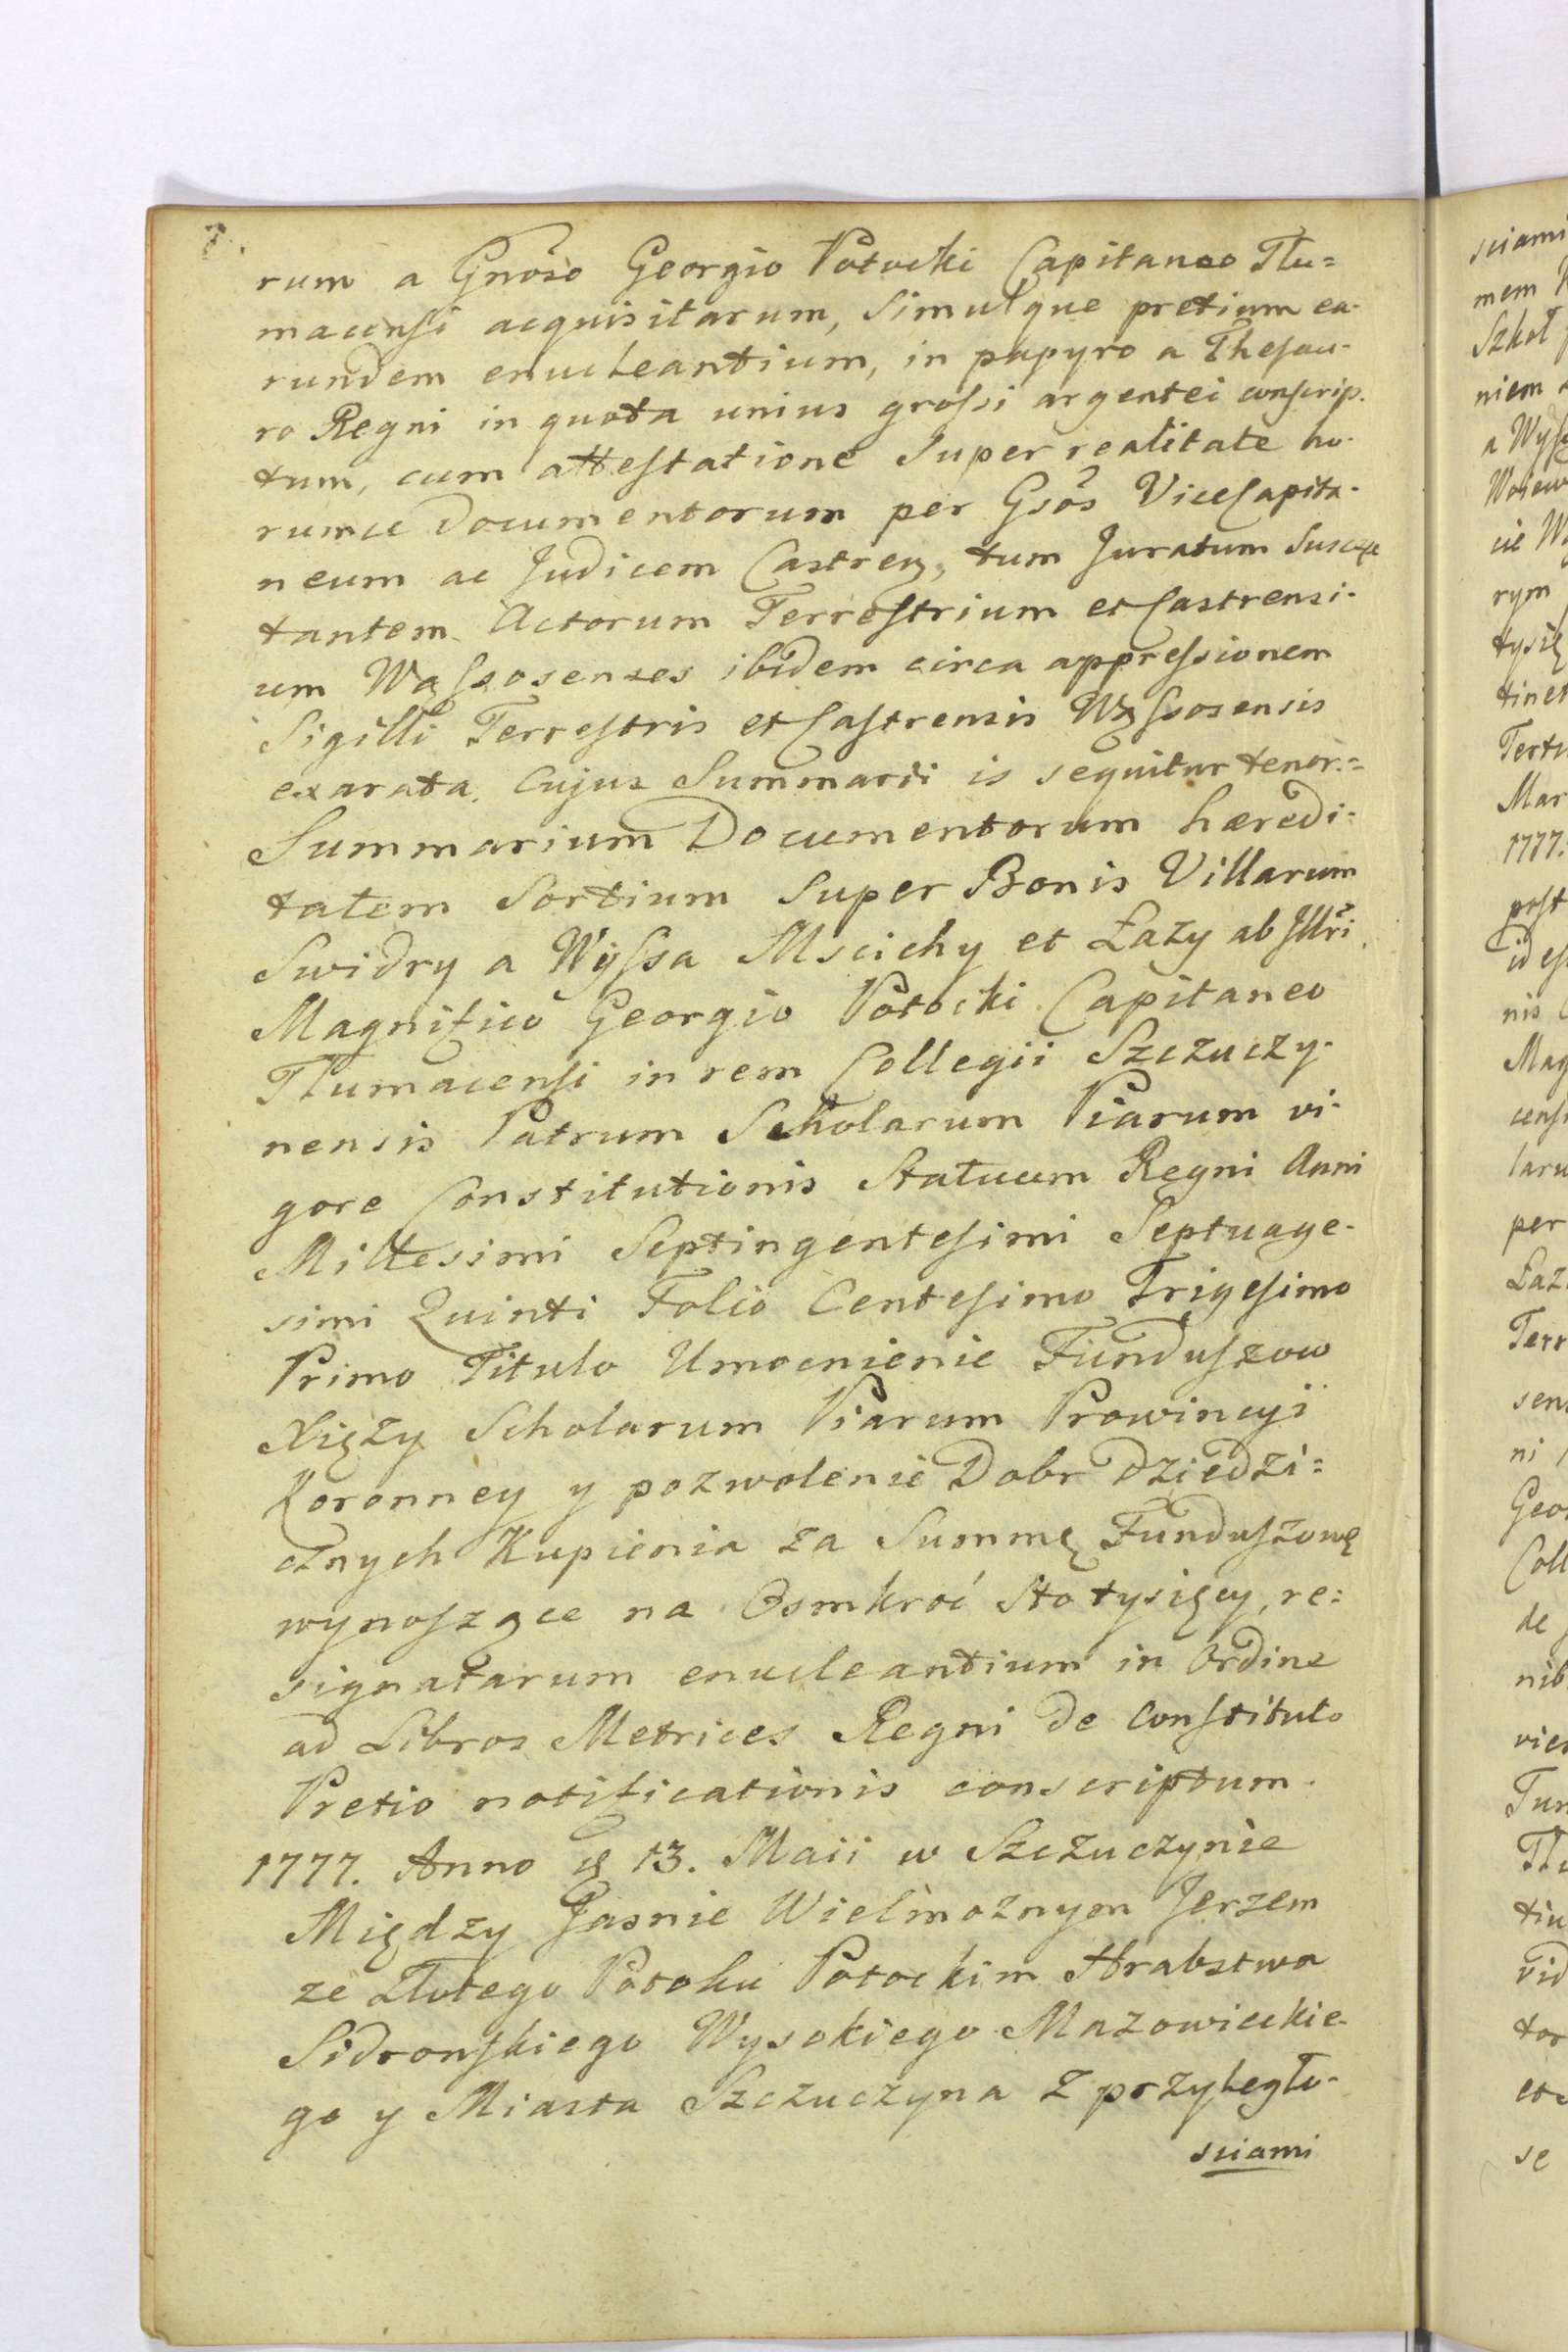 rum a Gnoso Georgio Potocki Capitaneo Tłu=
macensi acquisitarum, Simulque pretium ea-
rundem enucleantium, in papyro a Thesau-
ro Regni in quota unius grossi argentei conscrip-
tum, cum attestatione Super realitate ho-
rumce Documentorum per Gsos ViceCapita-
neum ac Judicem Castren, tum Juratum Suscep
tantem Actorum Terrestrium et Castrensi-
um Wąssosenses ibidem circa appressionem
Sigilli Terrestris et Castrensis Wąssosensis
exarata. Cujus Summarii is sequitur tenor.=
Summarium Documentorum hæredi-
tatem Sortium Super Bonis Villarum
Swidry a Wyssa Mscichy et Łazy ab Jllri
Magnifico Georgio Potocki Capitaneo
Tłumacensi in rem Collegii Szczuczy-
nensis Patrum Scholarum Piarum vi-
gore Constitutionis Statuum Regni Anni
Millesimi Septingentesimi Septuage-
simi Quinti Folio Centesimo Trigesimo
Primo Titulo Umocnienie Funduszow
Xięży Scholarum Piarum Prowincyi
Koronney y pozwolenie Dobr Dziedzi=
cznych Kupienia za Summę Funduszowę
wynoszące na Osmkroć Sto tysięcy, re=
signatarum enucleantium in Ordine
ad Libros Metrices Regni de Constituto
Pretio notificationis conscriptum.
1777. Anno 13. Maii w Szczuczynie
Między Jasnie Wielmożnym Jerzem
ze Złotego Potoku Potockim Hrabstwa
Sidronskiego Wysokiego Mazowieckie-
go y Miasta Szczuczyna z przyległo-
sciami
sciami
mem
Szkoł
niem
a Wyss
rym
tysię
tinet
Mar
1777.
post
id es
nis
Mag
censi
laru
per
Łaz
Terr
sen
ni
Geo
Coll
de
nib
Tłu
vid
tor
se